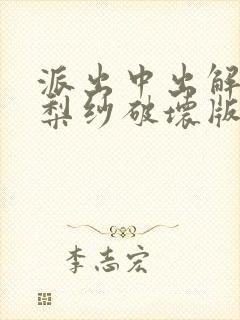 派出中出解
梨纱破坏版
李志宏